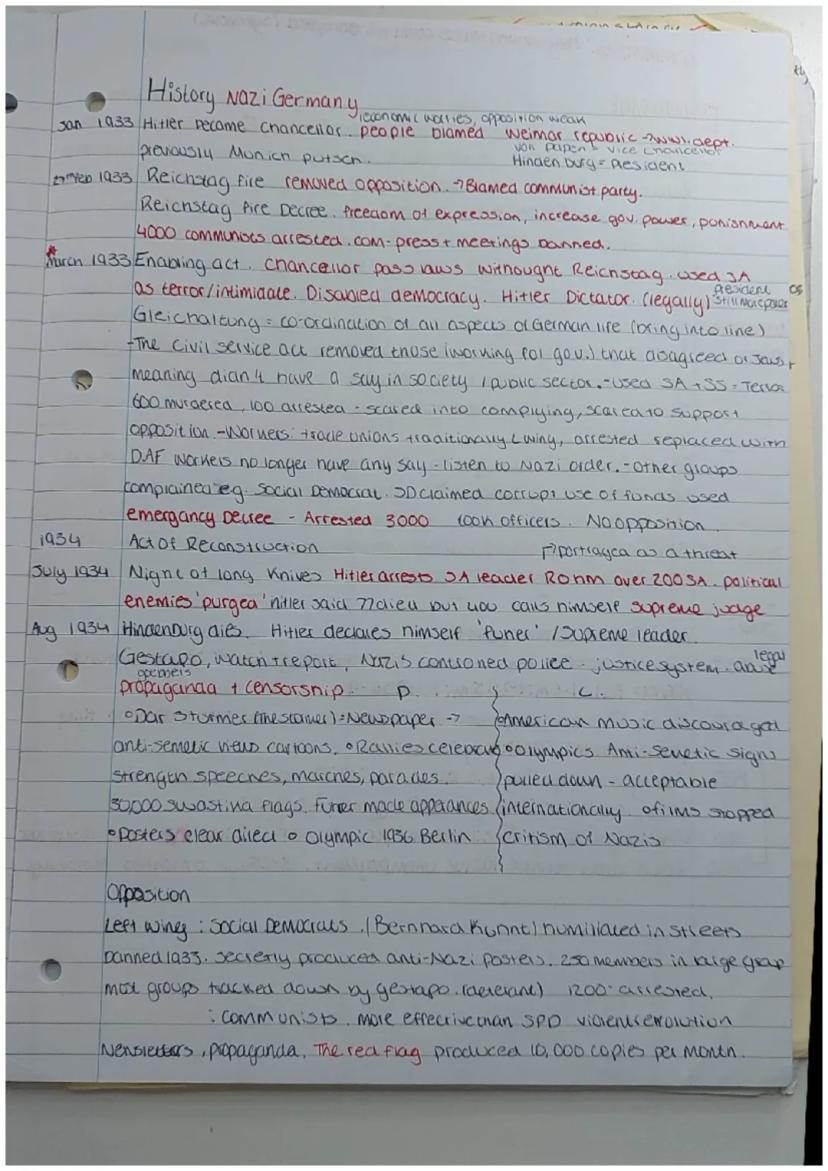 History Nazi Germany
economic worries, opposition weak
Jan 1933 Hitler become chancellor. people blamed Weimar republic → WW1, dept.
von papen = vice chancellor
previously Munich putsch. Hindenburg = President
27 Feb 1933 Reichstag fire removed opposition. → Blamed communist party.
Reichstag fire Decree. freedom of expression, increase gov. power, punishment
4000 communists arrested. com. press + meetings banned.
March 1933 Enabling act. chancellor pass laws withought Reichstag. used SA
as terror/intimidate. Disabled democracy. Hitler Dictator. (legally) President still more power
Gleichaltung = co-ordination of all aspects of German life (bring into line)
-The civil service act removed those (working for gov.) that disagreed or Jews,
meaning didn't have a say in society / public sector. - used SA + SS = Terror
600 murdered, 100 arrested - scared into complying, scared to support
opposition. - Workers: trade unions traditionally L wing, arrested replaced with
DAF workers no longer have any say - listen to Nazi order. - other groups
complained eg. Social Democrat. SD claimed corrupt use of funds used
emergancy Decree - Arrested 3000 took officers. No opposition.
1934 Act Of Reconstruction → portrayed as a threat
July 1934 Night of long Knives Hitler arrests SA leader Rohm over 200 SA. political
enemies 'purged' hitler said 77 died but 400 calls himself supreme judge
Aug 1934 Hindenburg dies. Hitler declares himself 'furher' / Supreme leader.
Gestapo, watch + report, Nazis controlled police. justice system. legal
propaganda + censorship. P. C.
○Dar Sturmier (the stormer) = Newspaper → ○American music discouraged
anti-semetic views cartoons. ○Rallies celebrated ○Olympics Anti-Semetic signs
strength speeches, marches, parades. pulled down - acceptable
30,000 swastina flags. Furher made apperances. internationally ○films stopped
○Posters clear direct ○ Olympic 1936 Berlin critism of Nazis
Opposition
Left wing : Social Democrats. (Bernhard Kuhnt) humiliated in streets
banned 1933. secretly produced anti-Nazi posters. 250 members in large group
most groups tracked down by gestapo. 1200 arrested.
: communists. more effective than SPD violent revolution
Newsletters, propaganda. The red flag produced 10,000 copies per month.